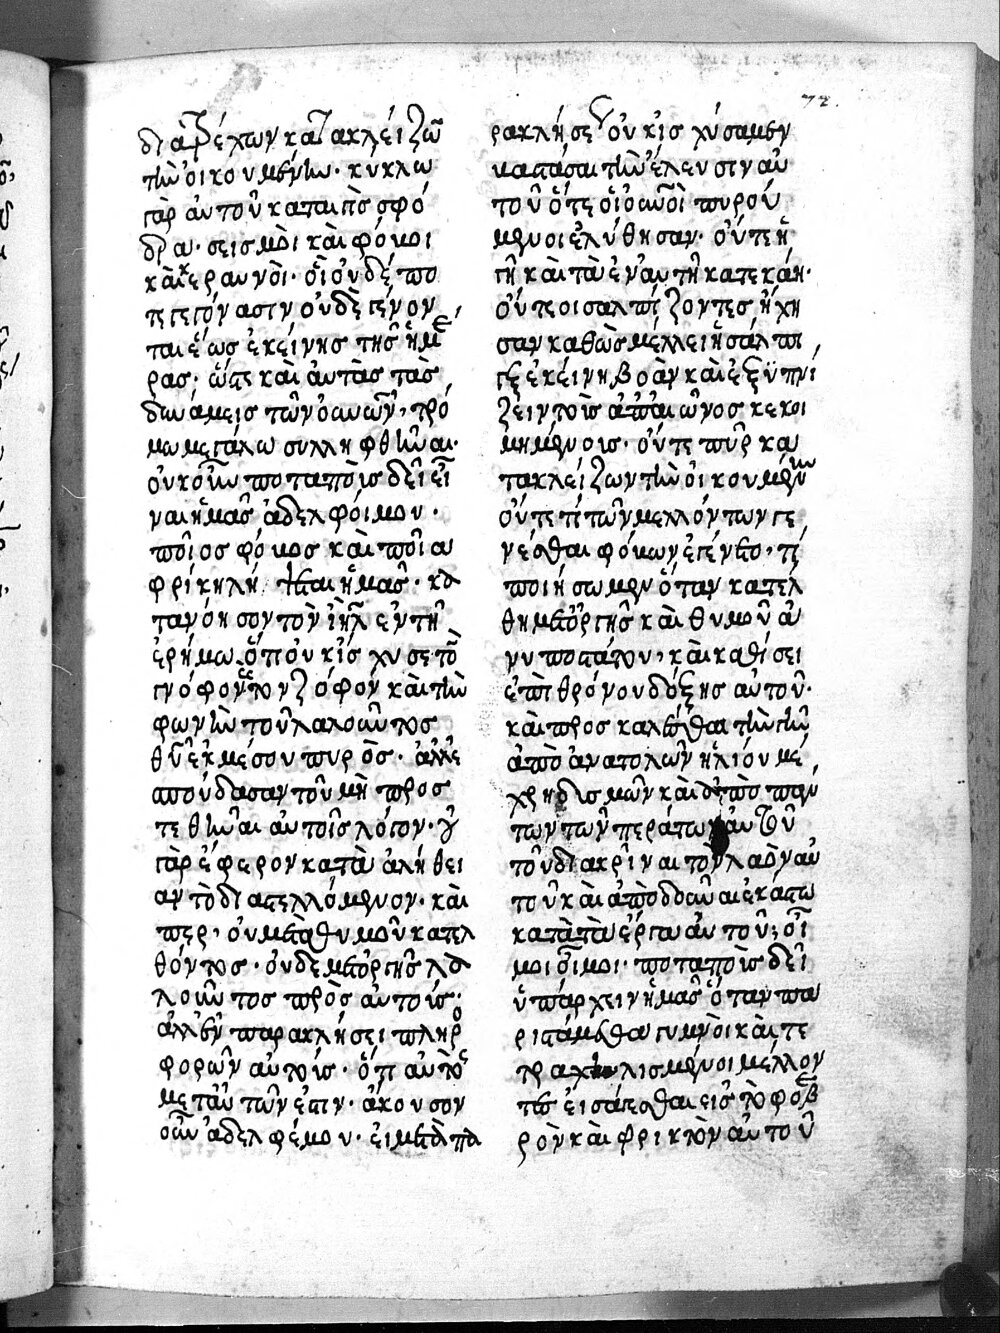 72.
διατρέχων κατακλείζων
τὴν οἰκουμένην· κύκλω
γὰρ αὐτοῦ καταιγὶς σφό
δρα· σεισμοὶ καὶ φόβοι
καὶ κεραυνοὶ· οἳ οὐδέπο
τε γεγόνασιν οὐδὲ γένον
ται ἕως ἐκείνης τῆς ἡμέ
ρας· ὥστε καὶ αὐτὰς τὰς
δυνάμεις τῶν οὐρανῶν, τρό
μω μεγάλω συλληφθῆναι·
οὐκοῦν ποταποὺς δεῖ εἶ
ναι ἡμᾶς ἀδελφοί μου·
ποῖος φόβος καὶ ποία
φρίκη λήψεται ἡμᾶς· κα
τανόησον τὸν ἰηλ ἐν τῆ
ἐρήμω ὅτι οὐκ ἴσχυσε τὸν
γνόφον καὶ τὸν ζόφον καὶ τὴν
φωνὴν τοῦ λαλοῦντος
θυ ἐκ μέσου πυρὸς· ἀλλ' ἐ
σπούδασαν τοῦ μὴ προς
τεθῆναι αὐτοῖς λόγον· οὐ
γὰρ ἔφερον κατὰ ἀλήθει
αν τὸ διαστελλόμενον· καὶ
περ· οὐ μετὰ θυμοῦ κατελ
θόντος· οὐδὲ μετ' ὀργῆς λα
λοῦντος πρὸς αὐτούς·
ἀλλ' ἐν παρακλήσει πληρο
φορῶν αὐτούς· ὅτι αὐτὸς
μετ' αὐτῶν ἐστιν· ἄκουσον
οὖν ἀδελφέ μου· εἰ μετὰ πα
ρακλήσεως οὐκ ἴσχυσαμεν
βαστάσαι τὴν ἔλευσιν αὐ
τοῦ ὅτε οἱ οὐνοὶ πυρού
μενοι ἐλύθησαν· οὔτε ἡ
γῆ καὶ τὰ ἐν αὐτῆ κατεκάη·
οὔτε οἱ σαλπίζοντες ἤχη
σαν καθὼς μέλλει ἡ σάλπι
γξ ἐκείνη βοᾶν καὶ ἐξυπνί
ζειν τοὺς ἀπ' αἰῶνος κεκοι
μημένους· οὔτε πῦρ κα
τακλείζων τὴν οἰκουμένην
οὔτε τί τῶν μελλόντων γε
νέσθαι φόβων ἐγένετο, τί
ποιήσωμεν ὅταν κατέλ
θη μετ' ὀργῆς καὶ θυμοῦ ἀ
νυποστάτου, καὶ καθίσει
ἐπὶ θρόνου δόξης αὐτοῦ·
καὶ προσκαλεῖσθαι τὴν γῆν
ἀπὸ ἀνατολῶν ἡλίου μέ
χρι δυσμῶν καὶ ἀπὸ πάν
των τῶν περάτων αὐτῆς
τοῦ διακρῖναι τὸν λαὸν αὐ
τοῦ καὶ ἀποδοῦναι ἑκάστω
κατὰ τὰ ἔργα αὐτοῦ; οἴ
μοι οἴμοι· ποταποὺς δεῖ
ὑπάρχειν ἡμᾶς ὅταν πα
ριστάμεθα γυμνοὶ καὶ τε
τραχηλισμένοι μέλλον
τες εἰσάγεσθαι εἰς τὸ φοβε
ρὸν καὶ φρικτὸν αὐτοῦ